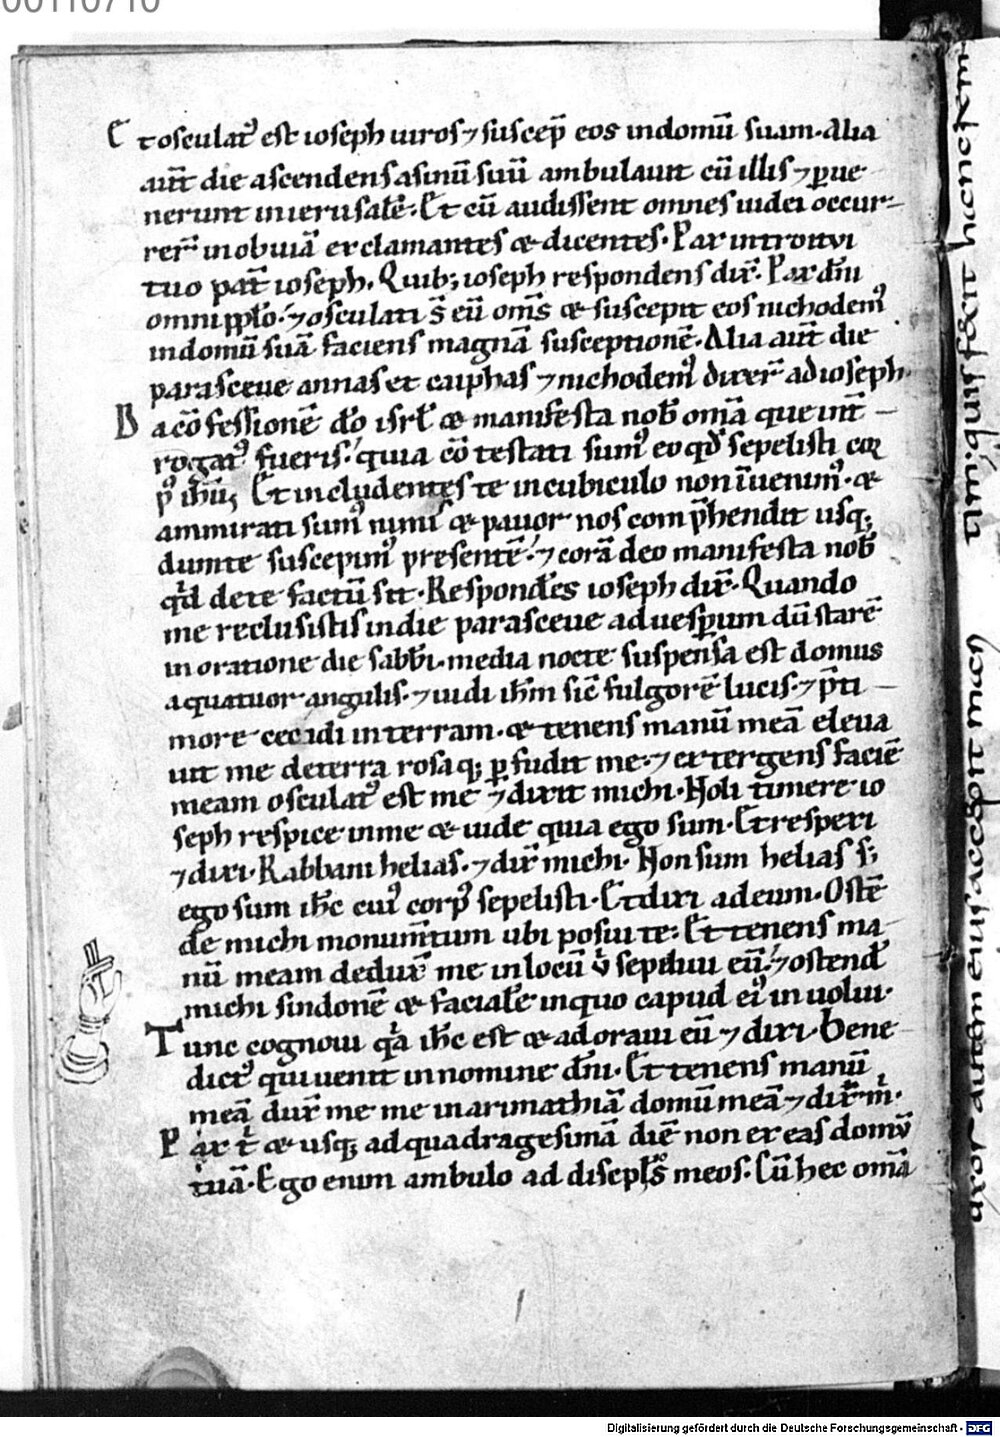 Et osculat᷒ est ioseph uiros ⁊ suscep̄ eos indomū suam. Alia
aūt die ascendens asinū suū ambulauit cū illis ⁊ ꝑue
nerunt inierusalē. Et cū audissent omnes iudei occur-
rer̄ inobuiā exclamantes & dicentes. Pax introitui
tuo pat̄ ioseph. Quib; ioseph respondens dix̄. Pax dn̄i
omni pplo. ⁊ osculati s̄ eū om̄s & suscepit eos nichodem᷒
indomū suā faciens magnā susceptionē. Alia aūt die
parasceue annas et caiphas ⁊ nichodem᷒ dixer̄ ad ioseph.
Da cōfessionē dō isrl̄ & manifesta nob̄ om̄a que int̄
rogat᷒ fueris. quia cōtestati sum᷒ eo qd̄ sepelisti cor
p᷒ ih̄u. Et includentes te incubiculo non īuenim᷒. &
ammirati sum᷒ nimis & pauor nos comp̄hendit usq;
dumte suscepim᷒ presentē. ⁊ corā deo manifesta nob̄
qd̄ dete factū sit. Respondēs ioseph dix̄. Quando
me reclusistis indie parasceue ad uesꝑum dū starē
in oratione die sabb̄i. media nocte suspensa est domus
aquatuor angulis. ⁊ uidi ih̄m sic̄ fulgorē lucis. ⁊ p̄ti
more cecidi interram. & tenens manū meā eleua
uit me deterra rosaq; ꝑfudit me. ⁊ extergens faciē
meam osculat᷒ est me ⁊ dixit michi. Noli timere io
seph respice inme & uide quia ego sum. Et respexi
⁊ dixi. Rabbani helias. ⁊ dix̄ michi. Non sum helias s;
ego sum ih̄c cui᷒ corp᷒ sepelisti. Et dixi ad eum. Ostē
de michi monum̄tum ubi posui te. Et tenens ma
nū meam dedux̄ me inlocū ů sepiliui eū. ⁊ ostend̄
michi sindonē & facialē inquo capud ei᷒ inuolui.
Tunc cognoui qͣ ih̄c est & adoraui eū ⁊ dixi. Bene
dict᷒ qui uenit innomine dn̄i. Et tenens manū
meā dux̄ me inarimathiā domū meā ⁊ dix̄ m̄.
Pax t̄ & usq; ad quadragesimā diē non exeas domū
tuā. Ego enim ambulo ad discipl̄os meos. Cū hec om̄a
Digitalisierung gefördert durch die Deutsche Forschungsgemeinschaft - DFG